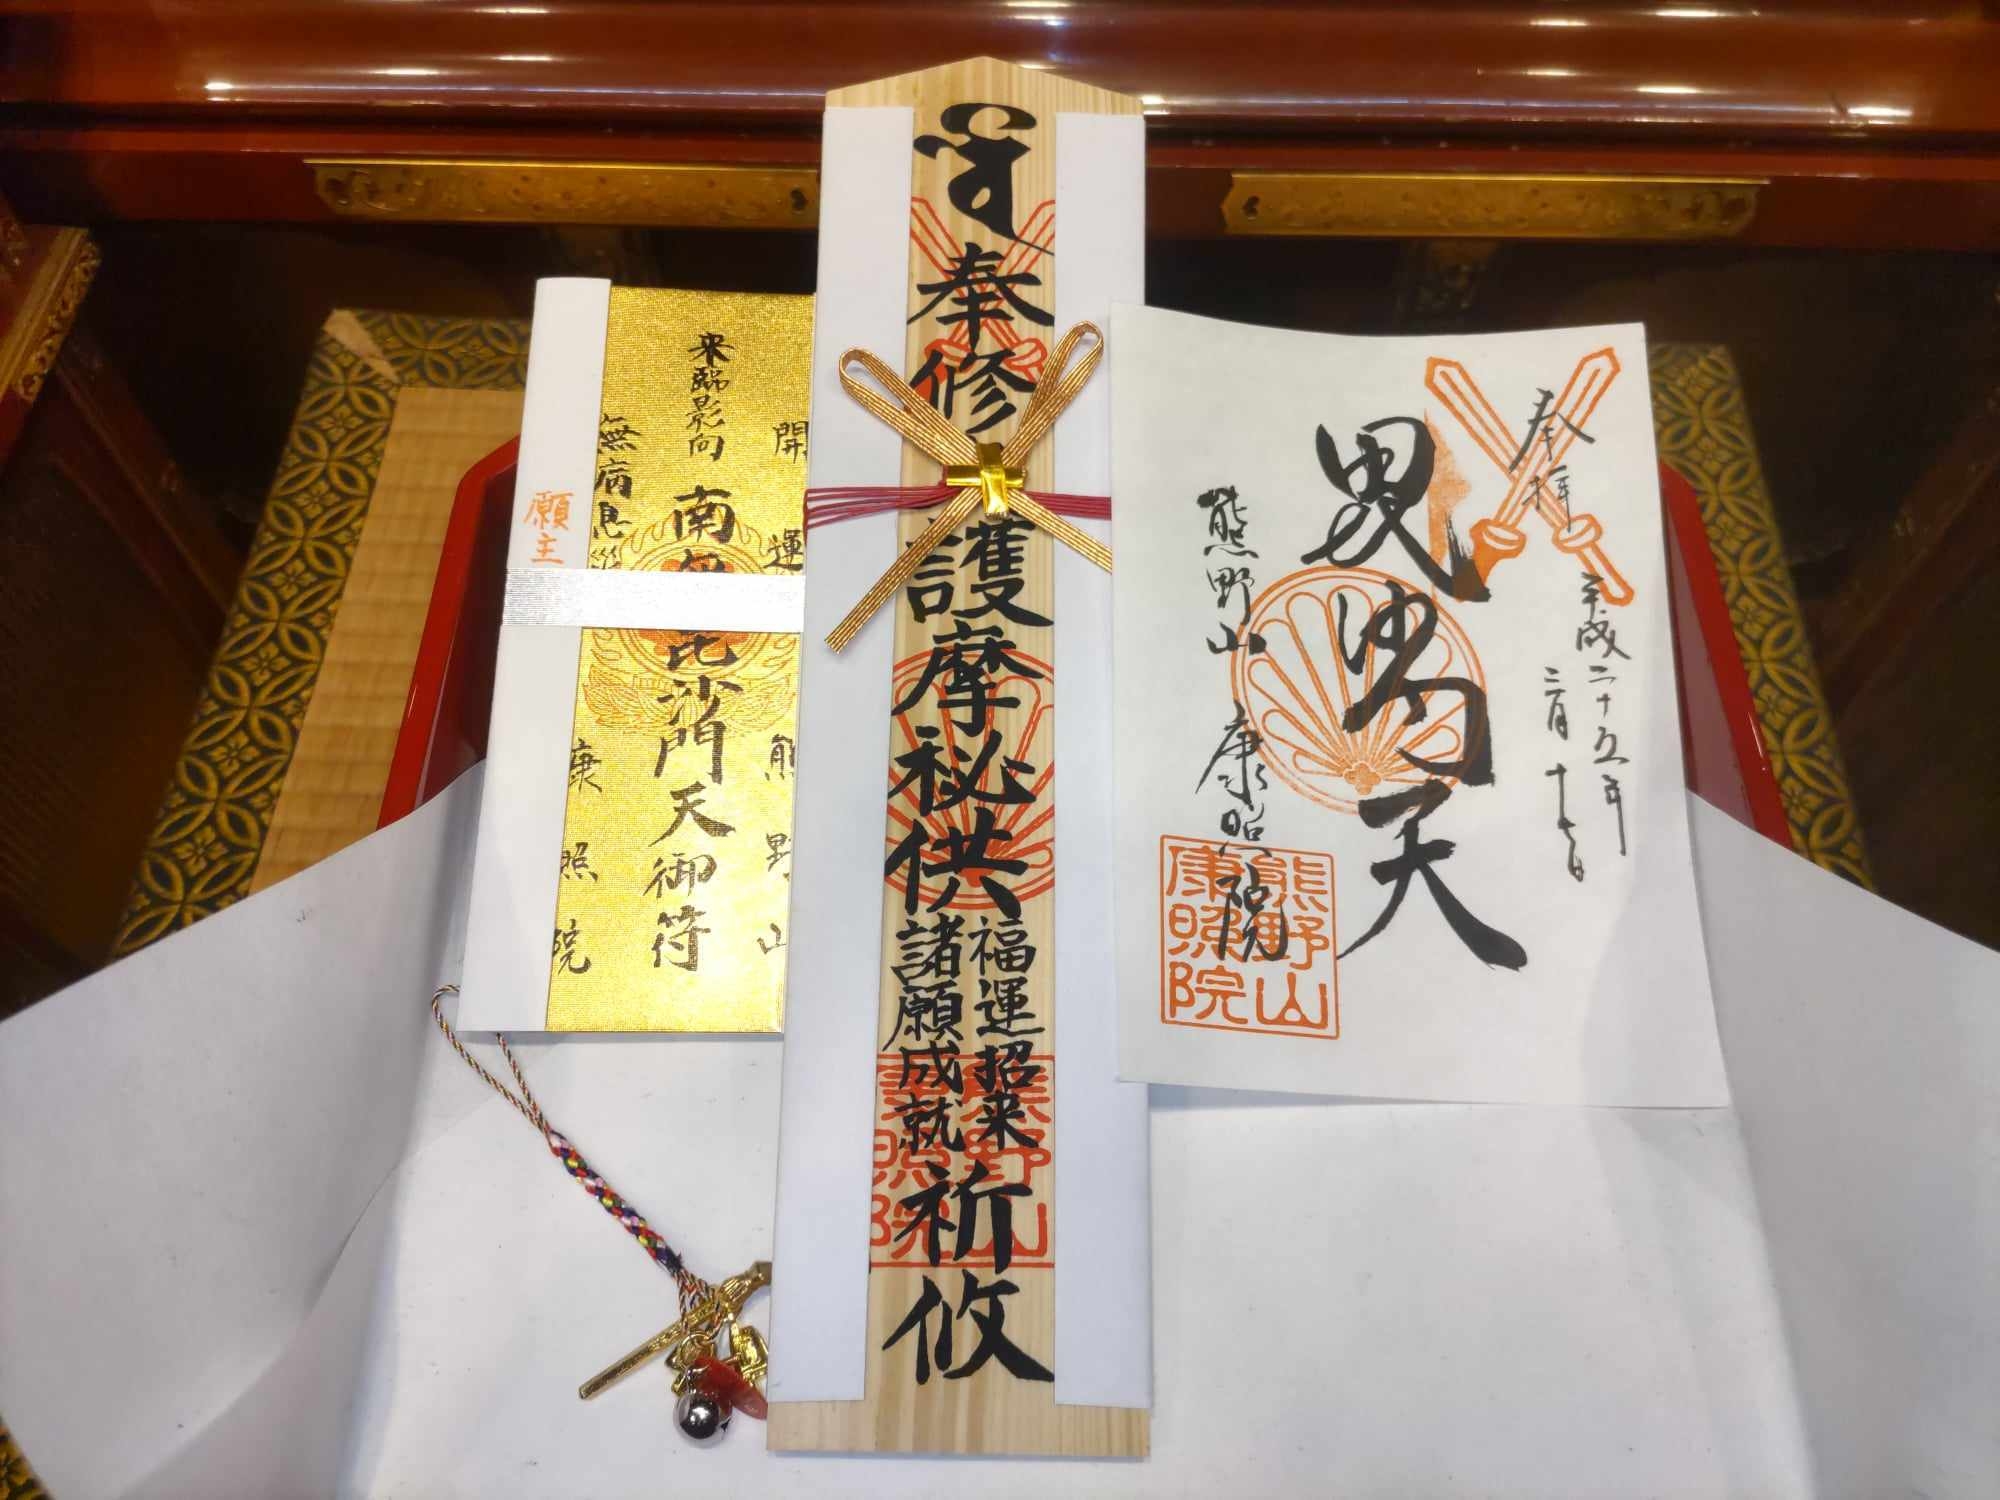 奉拝
平成二十五年
二月十七日
毘沙門天
熊野山 康照院
熊野山
康照院
奉修
護摩秘供
福運招来
諸願成就
祈攸
熊野山
照院
開運
熊野山
来臨影向
南
毘沙門天御符
無病息災
康照院
願主